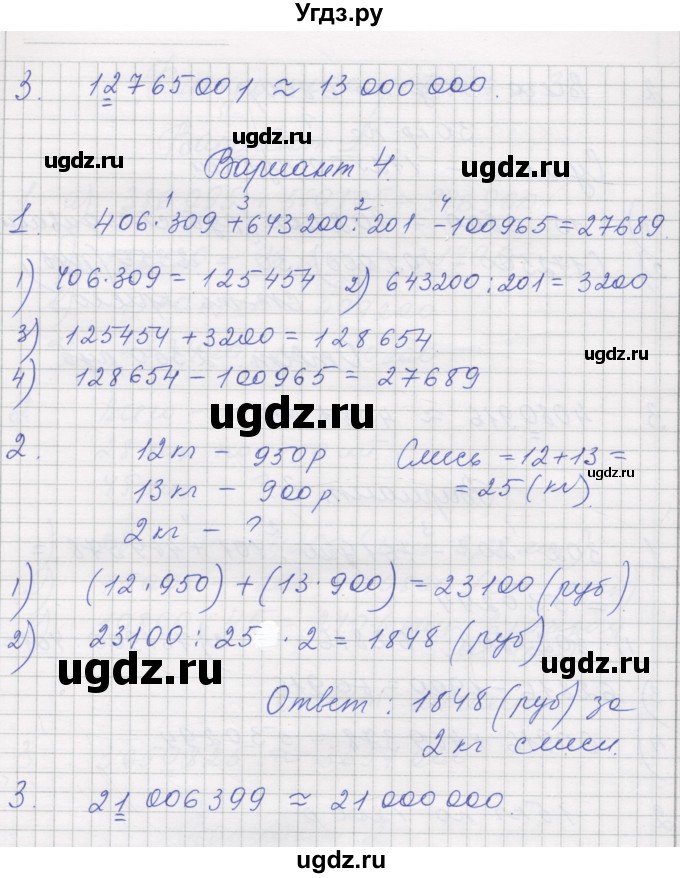 Угдз.ру
3. 12765001 ≈ 13 000 000.
ugdz.ru ugdz.ru
Вариант 4.
1 3 2 4
1. 406·309 + 643200 : 201 - 100965 = 27689.
1) 406·309 = 125454 2) 643200 : 201 = 3200
3) 125454 + 3200 = 128654.
ugdz.ru
4) 128654 - 100965 = 27689
ugdz.ru
2. 12 кг - 950 р Смесь = 12 + 13 =
ugdz.ru
13 кг - 900 р. = 25 (кг).
2 кг - ?
1) (12·950) + (13·900) = 23100 (руб).
2) 23100 : 25 · 2 = 1848 (руб)
ugdz.ru
ugdz.ru
Ответ : 1848 (руб) за
2 кг смеси.
3. 21 006399 ≈ 21 000 000.
ugdz.ru
ugdz.ru